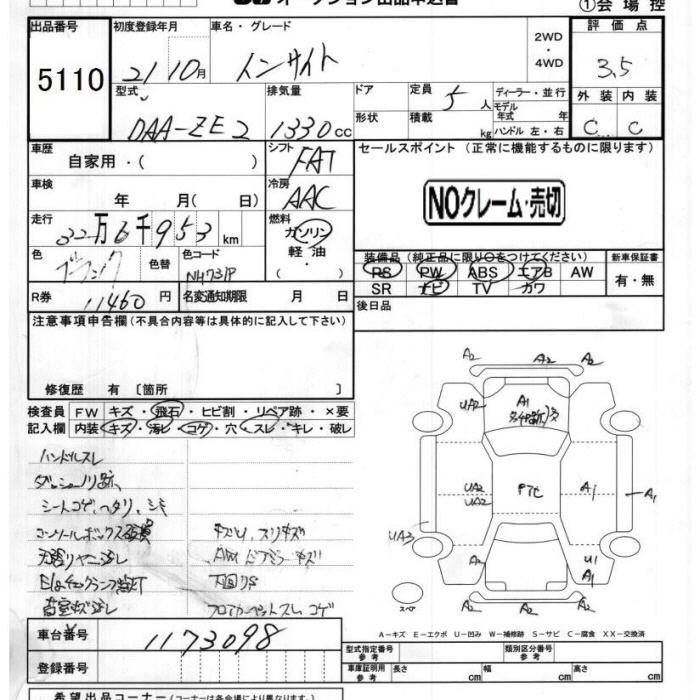 オークション出品申込書
①会場控
出品番号
5110
初度登録年月
21 10月
車名・グレード
インサイト
2WD
・
4WD
評価点
3.5
型式
DAA-ZE2
排気量
1330cc
ドア
形状
定員 5人
積載 kg
ディーラー・並行
モデル
年式 年式
ハンドル 左・右
外装 内装
C C
車歴
自家用・( )
シフト
FAT
セールスポイント (正常に機能するものに限ります)
NOクレーム・売切
車検
年 月( 日)
冷房
AAC
走行
32万6千953km
燃料
ガソリン
軽油・
( )
色
ブラック
色替
色コード
NH731P
装備品 (純正品に限り○をつけてください)
PS PW ABS エアB AW
SR ナビ TV カワ
新車保証書
有・無
R券
11460円
名変通知期限 月 日
後日品
注意事項申告欄(不具合内容等は具体的に記入して下さい)
修復歴 有 [箇所 ]
検査員
記入欄
FW キズ・飛石・ヒビ割・リペア跡・×要
内装・キズ・汚レ・コゲ・穴・スレ・キレ・破レ
ハンドルスレ
ダッシュノリ跡
シートコゲ、ヘタリ、シミ
コンソールボックス破損
天張りヤニ汚レ
荷室キズ汚レ
下回りサビ
フロアカーペットスレ コゲ
A2 A2 A2
UA2 A1
UA2
UA2
PTC
A1 A1
UA3
A2 U1
A1
A2 A2 A2
スペア
A-キズ E-エクボ U-凹み W-補修跡 S-サビ C-腐食 XX-交換済
車台番号
1173098
登録番号
型式指定番号
参考
類別区分番号
参考
車庫証明用
参考
長さ cm
幅 cm
高さ cm
希望出品コーナー(コーナーは各会場により異なります)